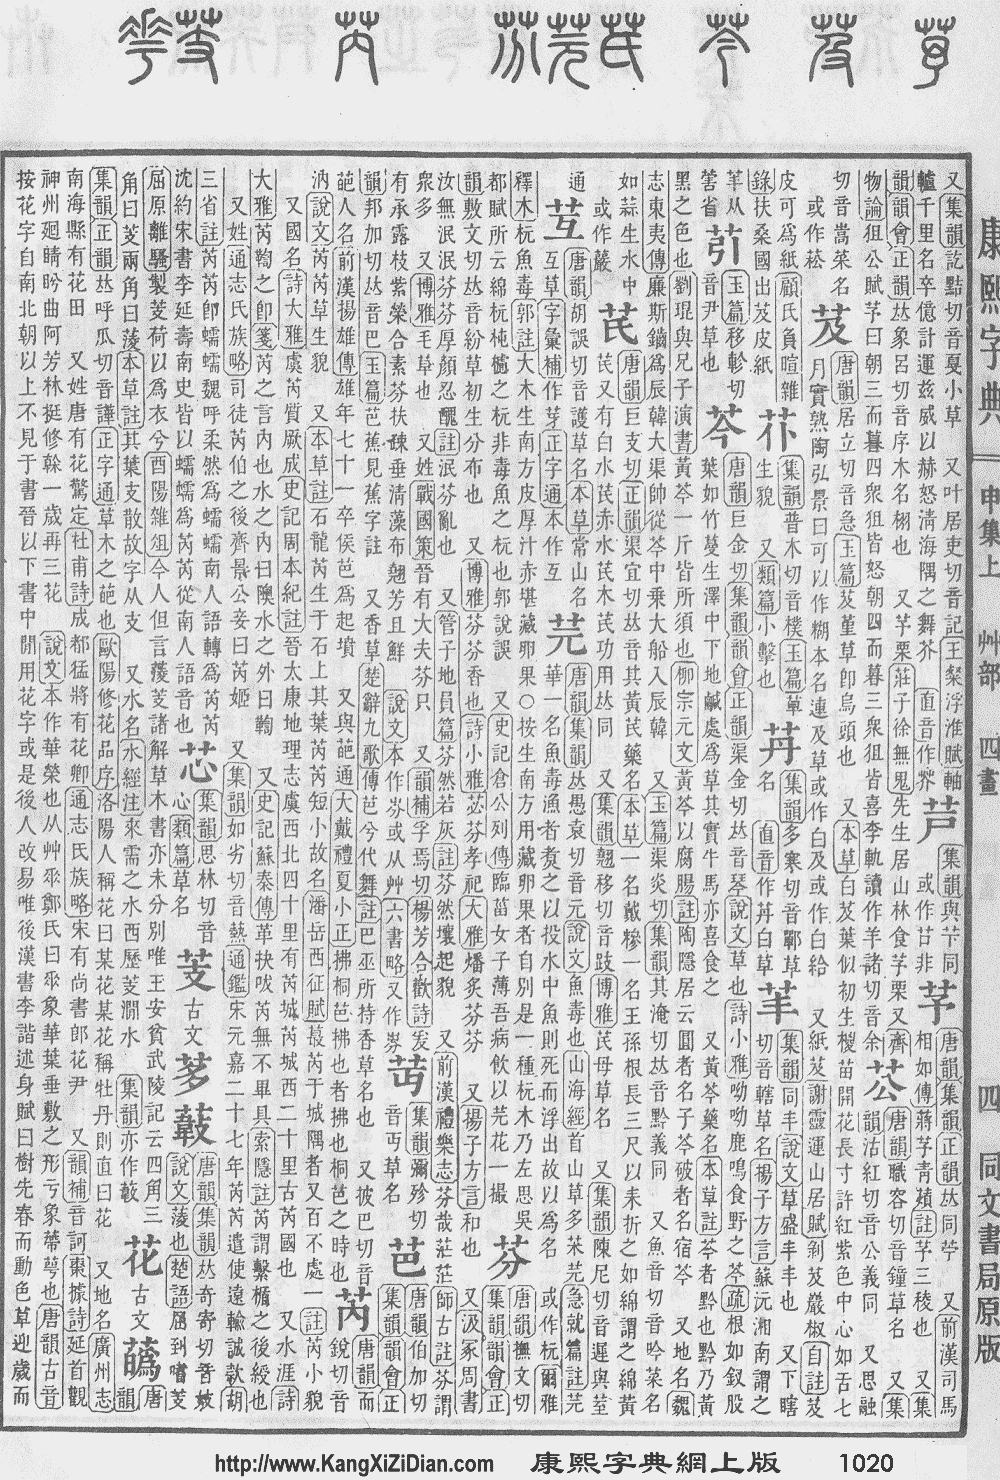 康熙字典 申集上 艸部 四畫 四 同文書局原版
又集韻訖黠切音戛小草 又叶居吏切音記王粲浮淮賦軸
轤千里名卒億計運茲威以赫怒淸海隅之舞芥 直音作𦬹
芦
集韻與苄同
或作苷非
芧
唐韻集韻正韻𠀤同苧 又前漢司馬
相如傳蔣芧靑薠註芧三稜也 又集
韻韻會正韻𠀤象呂切音序木名栩也 又芧栗莊子徐無鬼先生居山林食芧栗又齊
物論狙公賦芧曰朝三而暮四衆狙皆怒朝四而暮三衆狙皆喜李軌讀作羊諸切音余
䒶
唐韻職容切音鐘草名 又集
韻沽紅切音公義同 又思融
切音嵩菜名
或作菘
芨
唐韻居立切音急玉篇芨堇草卽烏頭也 又本草白芨葉似初生椶苗開花長寸許紅紫色中心如舌七
月實熟陶弘景曰可以作糊本名連及草或作白及或作白給 又紙芨謝靈運山居賦剝芨巖椒自註芨
皮可爲紙顧氏負暄雜
錄扶桑國出芨皮紙
集韻普木切音樸玉篇草
生貌 又類篇小擊也
集韻多寒切音鄲草
名 直音作苒白草
集韻同丰說文草盛丰丰也 又下瞎
切音轄草名揚子方言蘇沅湘南謂之
从
玉篇移軫切
音尹草也
芩
唐韻巨金切集韻韻會正韻渠金切𠀤音琴說文草也詩小雅呦呦鹿鳴食野之芩疏根如釵股
葉如竹蔓生澤中下地鹹處爲草其實牛馬亦喜食之 又黃芩藥名本草註芩者黔也黔乃黃
黑之色也劉琨與兄子演書黃芩一斤皆所須也柳宗元文黃芩以腐腸註陶隱居云圓者名子芩破者名宿芩 又地名魏
志東夷傳廉斯鑡爲辰韓大渠帥從芩中乗大船入辰韓 又玉篇渠炎切集韻其淹切𠀤音黔義同 又魚音切音吟菜名
如蒜生水中
或作䕾
芪
唐韻巨支切正韻渠宜切𠀤音其黃芪藥名本草一名戴糝一名王孫根長三尺以來折之如綿謂之綿黃
芪又有白水芪赤水芪木芪功用𠀤同 又集韻翹移切音跂博雅芪母草名 又集韻陳尼切音遲與荎
通
唐韻胡誤切音護草名本草常山名
互草字彙補作芽正字通本作互
芫
唐韻集韻𠀤愚袁切音元說文魚毒也山海經首山草多荣芫急就篇註芫
華一名魚毒漁者煑之以投水中魚則死而浮出故以爲名 或作杬爾雅
釋木杬魚毒郭註大木生南方皮厚汁赤堪藏卵果○按生南方用藏卵果者自別是一種杬木乃左思吳
都賦所云綿杬杶櫨之杬非毒魚之杬也郭說誤 又史記倉公列傳臨菑女子薄吾病飮以芫花一撮
芬
唐韻撫文切
集韻韻會正
韻敷文切𠀤音紛草初生分布也 又博雅芬芬香也詩小雅苾芬孝祀大雅燔炙芬芬 又揚子方言和也 又汲冢周書
汝無泯泯芬芬厚顏忍醜註泯芬亂也 又管子地員篇芬然若灰註芬然壤起貌 又前漢禮樂志芬哉茫茫師古註芬謂
衆多 又博雅毛草也 又姓戰國策晉有大夫芬只 又韻補孚焉切楊芳合歡詩
有承露枝紫榮合素芬扶疎垂淸藻布翹芳且鮮 說文本作𡴀或从艸六書略又作岑
集韻彌殄切
音丏草名
芭
唐韻伯加切
集韻韻會正
韻邦加切𠀤音巴玉篇芭蕉見蕉字註 又香草楚辭九歌傳芭兮代舞註巴巫所持香草名也 又披巴切音
葩人名前漢揚雄傳雄年七十一卒侯芭爲起墳 又與葩通大戴禮夏小正拂桐芭拂也者拂也桐芭之時也
芮
唐韻而
銳切音
汭說文芮芮草生貌 又本草註石龍芮生于石上其葉芮芮短小故名潘岳西征賦蕞芮于城隅者又百不處一註芮小貌
又國名詩大雅虞芮質厥成史記周本紀註晉太康地理志虞西北四十里有芮城芮城西二十里古芮國也 又水涯詩
大雅芮鞫之卽箋芮之言內也水之內曰隩水之外曰鞫 又史記蘇秦傳革抉㕹芮無不畢具索隱註芮謂繫楯之後綬也
又姓通志氏族略司徒芮伯之後齊景公妾曰芮姬 又集韻如劣切音熱通鑑宋元嘉二十七年芮芮遣使遠輸誠款胡
三省註芮芮卽蠕蠕魏呼柔然爲蠕蠕南人語轉爲芮芮
沈約宋書李延壽南史皆以蠕蠕爲芮芮從南人語音也
芯
集韻思林切音
心類篇草名
芰
古文
唐韻集韻𠀤奇寄切音妓
說文蔆也楚語屈到嗜芰
屈原離騷製芰荷以爲衣兮酉陽雜俎今人但言蔆芰諸解草木書亦未分別唯王安貧武陵記云四角三
角曰芰兩角曰蔆本草註其葉支散故字从支 又水名水經注來需之水西歷芰澗水 集韻亦作䔖
花
古文
唐
韻
集韻正韻𠀤呼瓜切音譁正字通草木之葩也歐陽修花品序洛陽人稱花曰某花某花稱牡丹則直曰花 又地名廣州志
南海縣有花田 又姓唐有花驚定杜甫詩成都猛將有花卿通志氏族略宋有尚書郎花尹 又韻補音訶棗據詩延首觀
神州廻睛盼曲阿芳林挺修榦一歲再三花 說文本作華榮也从艸𠌶鄭氏曰𠌶象華葉垂敷之形亏象蔕萼也唐韻古音
按花字自南北朝以上不見于書晉以下書中閒用花字或是後人改易唯後漢書李諧述身賦曰樹先春而動色草迎歲而
http://www.KangXiZiDian.com 康熙字典網上版 1020